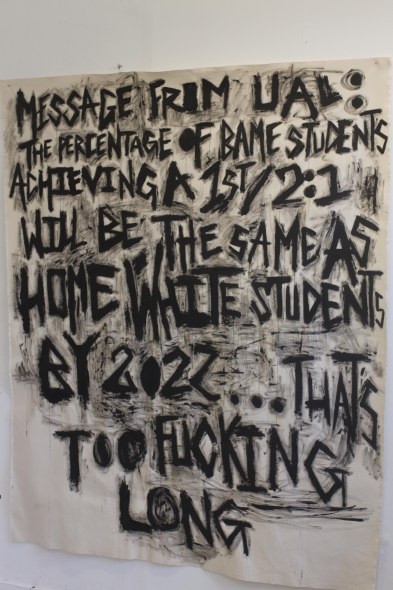 MESSAGE FROM UAL:
THE PERCENTAGE OF BAME STUDENTS
ACHIEVING A 1ST/2:1
WILL BE THE SAME AS
HOME WHITE STUDENTS
BY 2022...THAT'S
TOO FUCKING
LONG